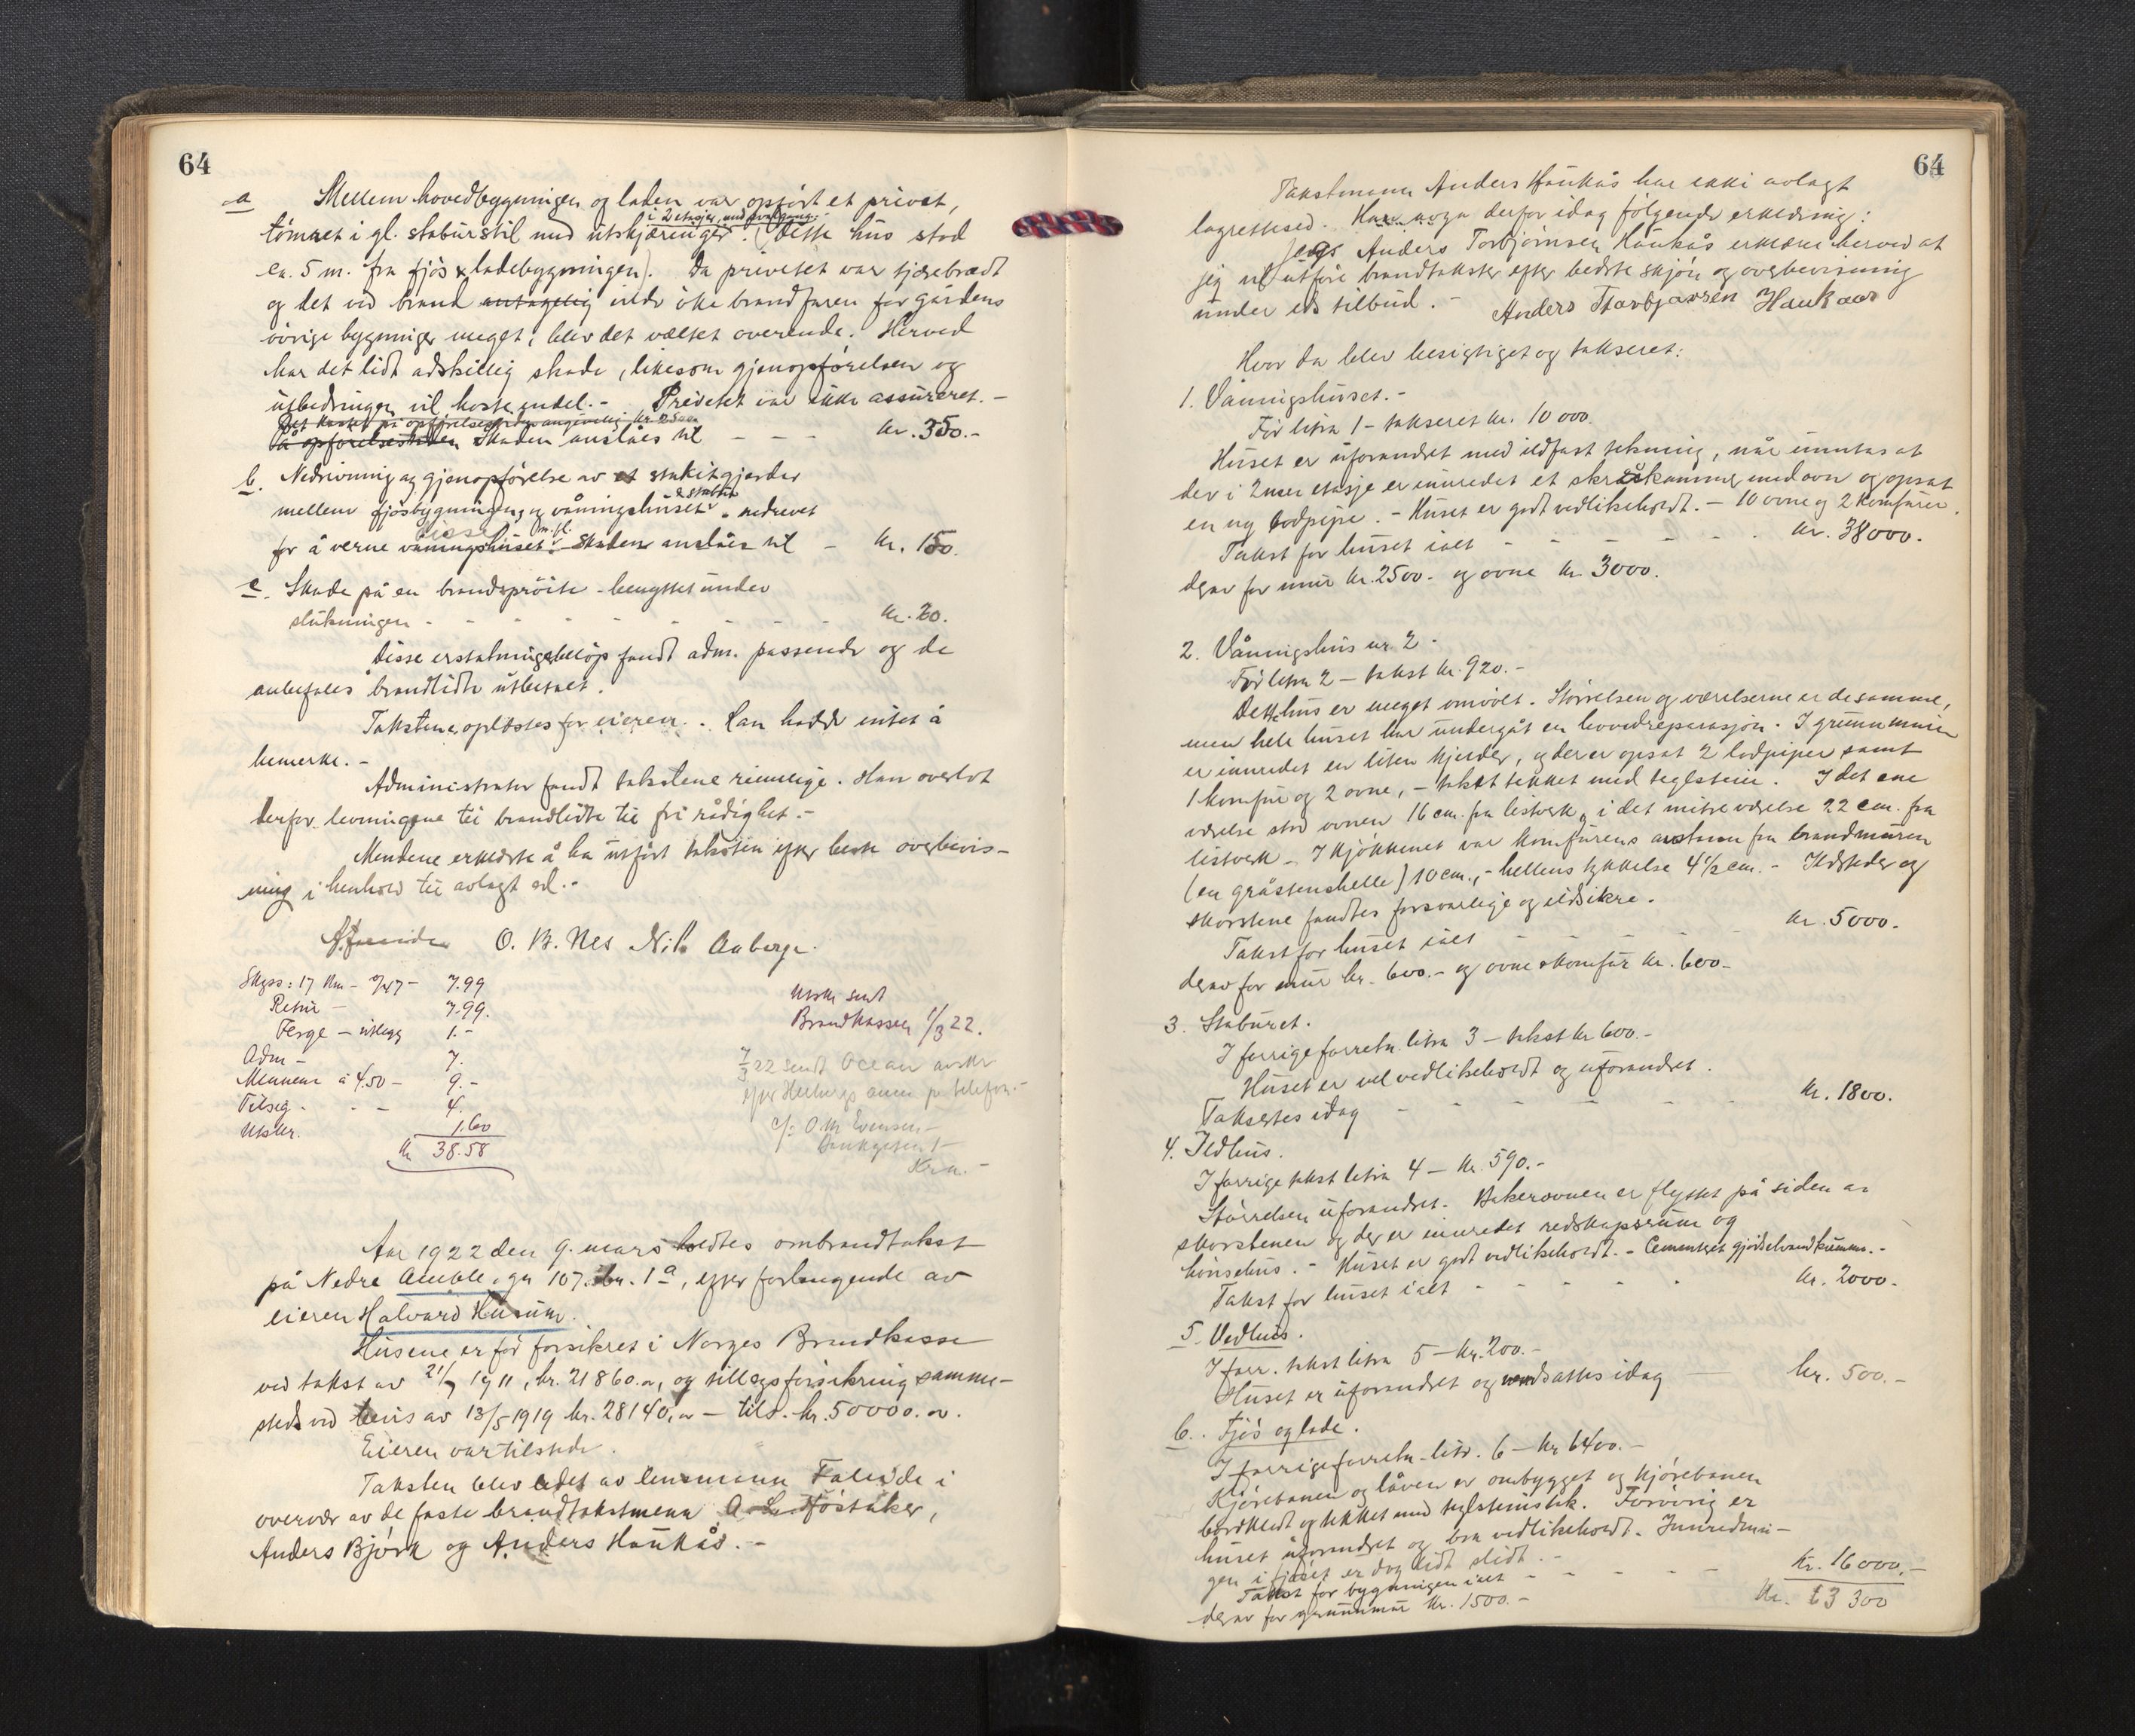 64
a Mellem hovedbygningen og laden var opført et privet,
i 2 etasjer, med svalgang.
tømret i gl. stabursstil med utskjæringer. (Dette hus stod
ca. 5 m. fra fjøs & ladebygningen). Da privetet var tjærebrædt
og det ved brand antagelig vilde øke brandfaren for gårdens
øvrige bygninger meget, blev det væltet overende. Herved
har det lidt adskillig skade, likesom gjenopførelsen og
utbedringen vil koste endel. - Privetet var ikke assureret. -
Det kostet på opførelsestiden angivelig kr.
på opførelsestiden Skaden anslåes til - - - kr. 350.-
b. Nedrivning og gjenopførelse av et stakitgjerder
mellem fjøsbygningen og våningshuset & stabur nedrevet
for å verne våningshuset m.fl. Skaden anslåes til - kr. 150.
c. Skade på en brandsprøite - benyttet under
slukningen - - - - - - - - kr. 20.
Disse erstatningsbeløp fandt adm. passende og de
anbefales brandlidte utbetalt.
Takstene oplæstes for eieren. Han hadde intet å
bemerke. -
Administrator fandt takstene rimelige. Han overlot
derfor levningene til brandlidte til fri rådighet. -
Mendene erklærte å ha utført taksten efter beste overbevis-
ning i henhold til avlagt ed. -
O. B. Nes Nils Amberge
Skyss: 17 km - 0/47 - 7.99
Retur - 7.99.
Ferge - utlegg 1.-
Adm - 7.
Mennene à 4.50 - 9.-
Tilsig. - - 4.
Utskr. 1.60
kr 38.58
Utskr. sendt
Brandkassen 1/3 22.
7/3 22 sendt Ocean utskr
efter Heibergs anm pr telefon. -
c/o O. M. Evensen -
Bankgaten 1 -
Krn. -
Aar 1922 den 9. mars holdtes ombrandtakst
på Nedre Amble, gn 107. br. 1 a, efter forlangende av
eieren Halvard Husum.
Husene er før forsikret i Norges Brandkasse
ved takst av 21/7 1911, kr. 21860.oo, og tillægsforsikring samme-
steds ved bevis av 13/5 1919 kr. 28140,oo - tils. kr. 50000.oo.
Eieren var tilstede.
Taksten blev ledet av lensmann Faleide i
overvær av de faste brandtakstmenn
Anders Bjørk og Anders Haukås. -
64
Takstmann Anders Haukås har ikki avlagt
lagrettesed. Han avga derfor idag følgende erklæring:
Jeg Anders Torbjørnsen Haukås erklærer herved at
jeg vil utføre brandtakster efter bedste skjøn og overbevisning
under eds tilbud. - Anders Torbjørnsen Haukaas
Hvor da blev besigtiget og takseret:
1. Våningshuset. -
Før litra 1 - takseret kr. 10 000.
Huset er uforandret med ildfast tekning, når unntas at
der i 2nen etasje er innredet et skråkammer med ovn og opsat
en ny lodpipe. - Huset er godt vedlikeholdt. - 10 ovne og 2 komfurer.
Takst for huset ialt - - - - - kr. 38000.
derav for mur kr. 2500. og ovne kr 3000.
2. Våningshus nr. 2 -
Før litra 2 - takst kr. 920. -
Dette hus er meget omvølt. Størrelsen og værelserne er desamme,
men hele huset har undergåt en hovedreparasjon. I grunnmuren
er innredet en liten kjelder, og der er opsat 2 lodpiper samt
1 komfur og 2 ovne, - taket tekket med teglstein. I det ene
værelse stod ovnen 16 cm. fra listverk, i det midtre værelse 22 cm. fra
listverk - I kjøkkenet var komfurens avstann fra brandmuren
(en gråstenshelle) 10 cm., - hellens tykkelse 4 1/2 cm. - Ildsteder og
skorstene fandtes forsvarlige og ildsikre.
Takst for huset ialt - - - - - kr. 5000.
derav for mur kr. 600.- og ovne & komfur kr. 600-
3. Staburet.
I forrige forretn. litra 3 - takst kr 600. -
Huset er vel vedlikeholdt og uforandret.
Takseres idag - - - - - - kr. 1800.
4. Ildhus.
I forrige takst litra 4 - kr. 590. -
Størrelsen uforandret. Bakerovnen er flyttet på siden av
skorstenen og der er innredet redskapsrum og
hønsehus. - Huset er godt vedlikeholdt. - Cementert gjødselvandkumme. -
Takst for huset ialt - - - - kr. 2000.
5. Vedhus.
I forr. takst litra 5 - kr. 200. -
Huset er uforandret og verdsattes idag - kr. 500. -
6. Fjøs og lade.
I forrige forretn. litr. 6 - kr 6400. -
Kjørebanen og låven er ombygget og kjørebanen
bordklædt og tekket med teglsteinstak. Forøvrig er
huset uforandret og bra vedlikeholdt. Innrednin-
gen i fjøset er dog lidt slidt. -
Takst for bygningen ialt - - - - - kr. 16000. -
derav for grunnmur kr. 1500. -
kr. 63 300